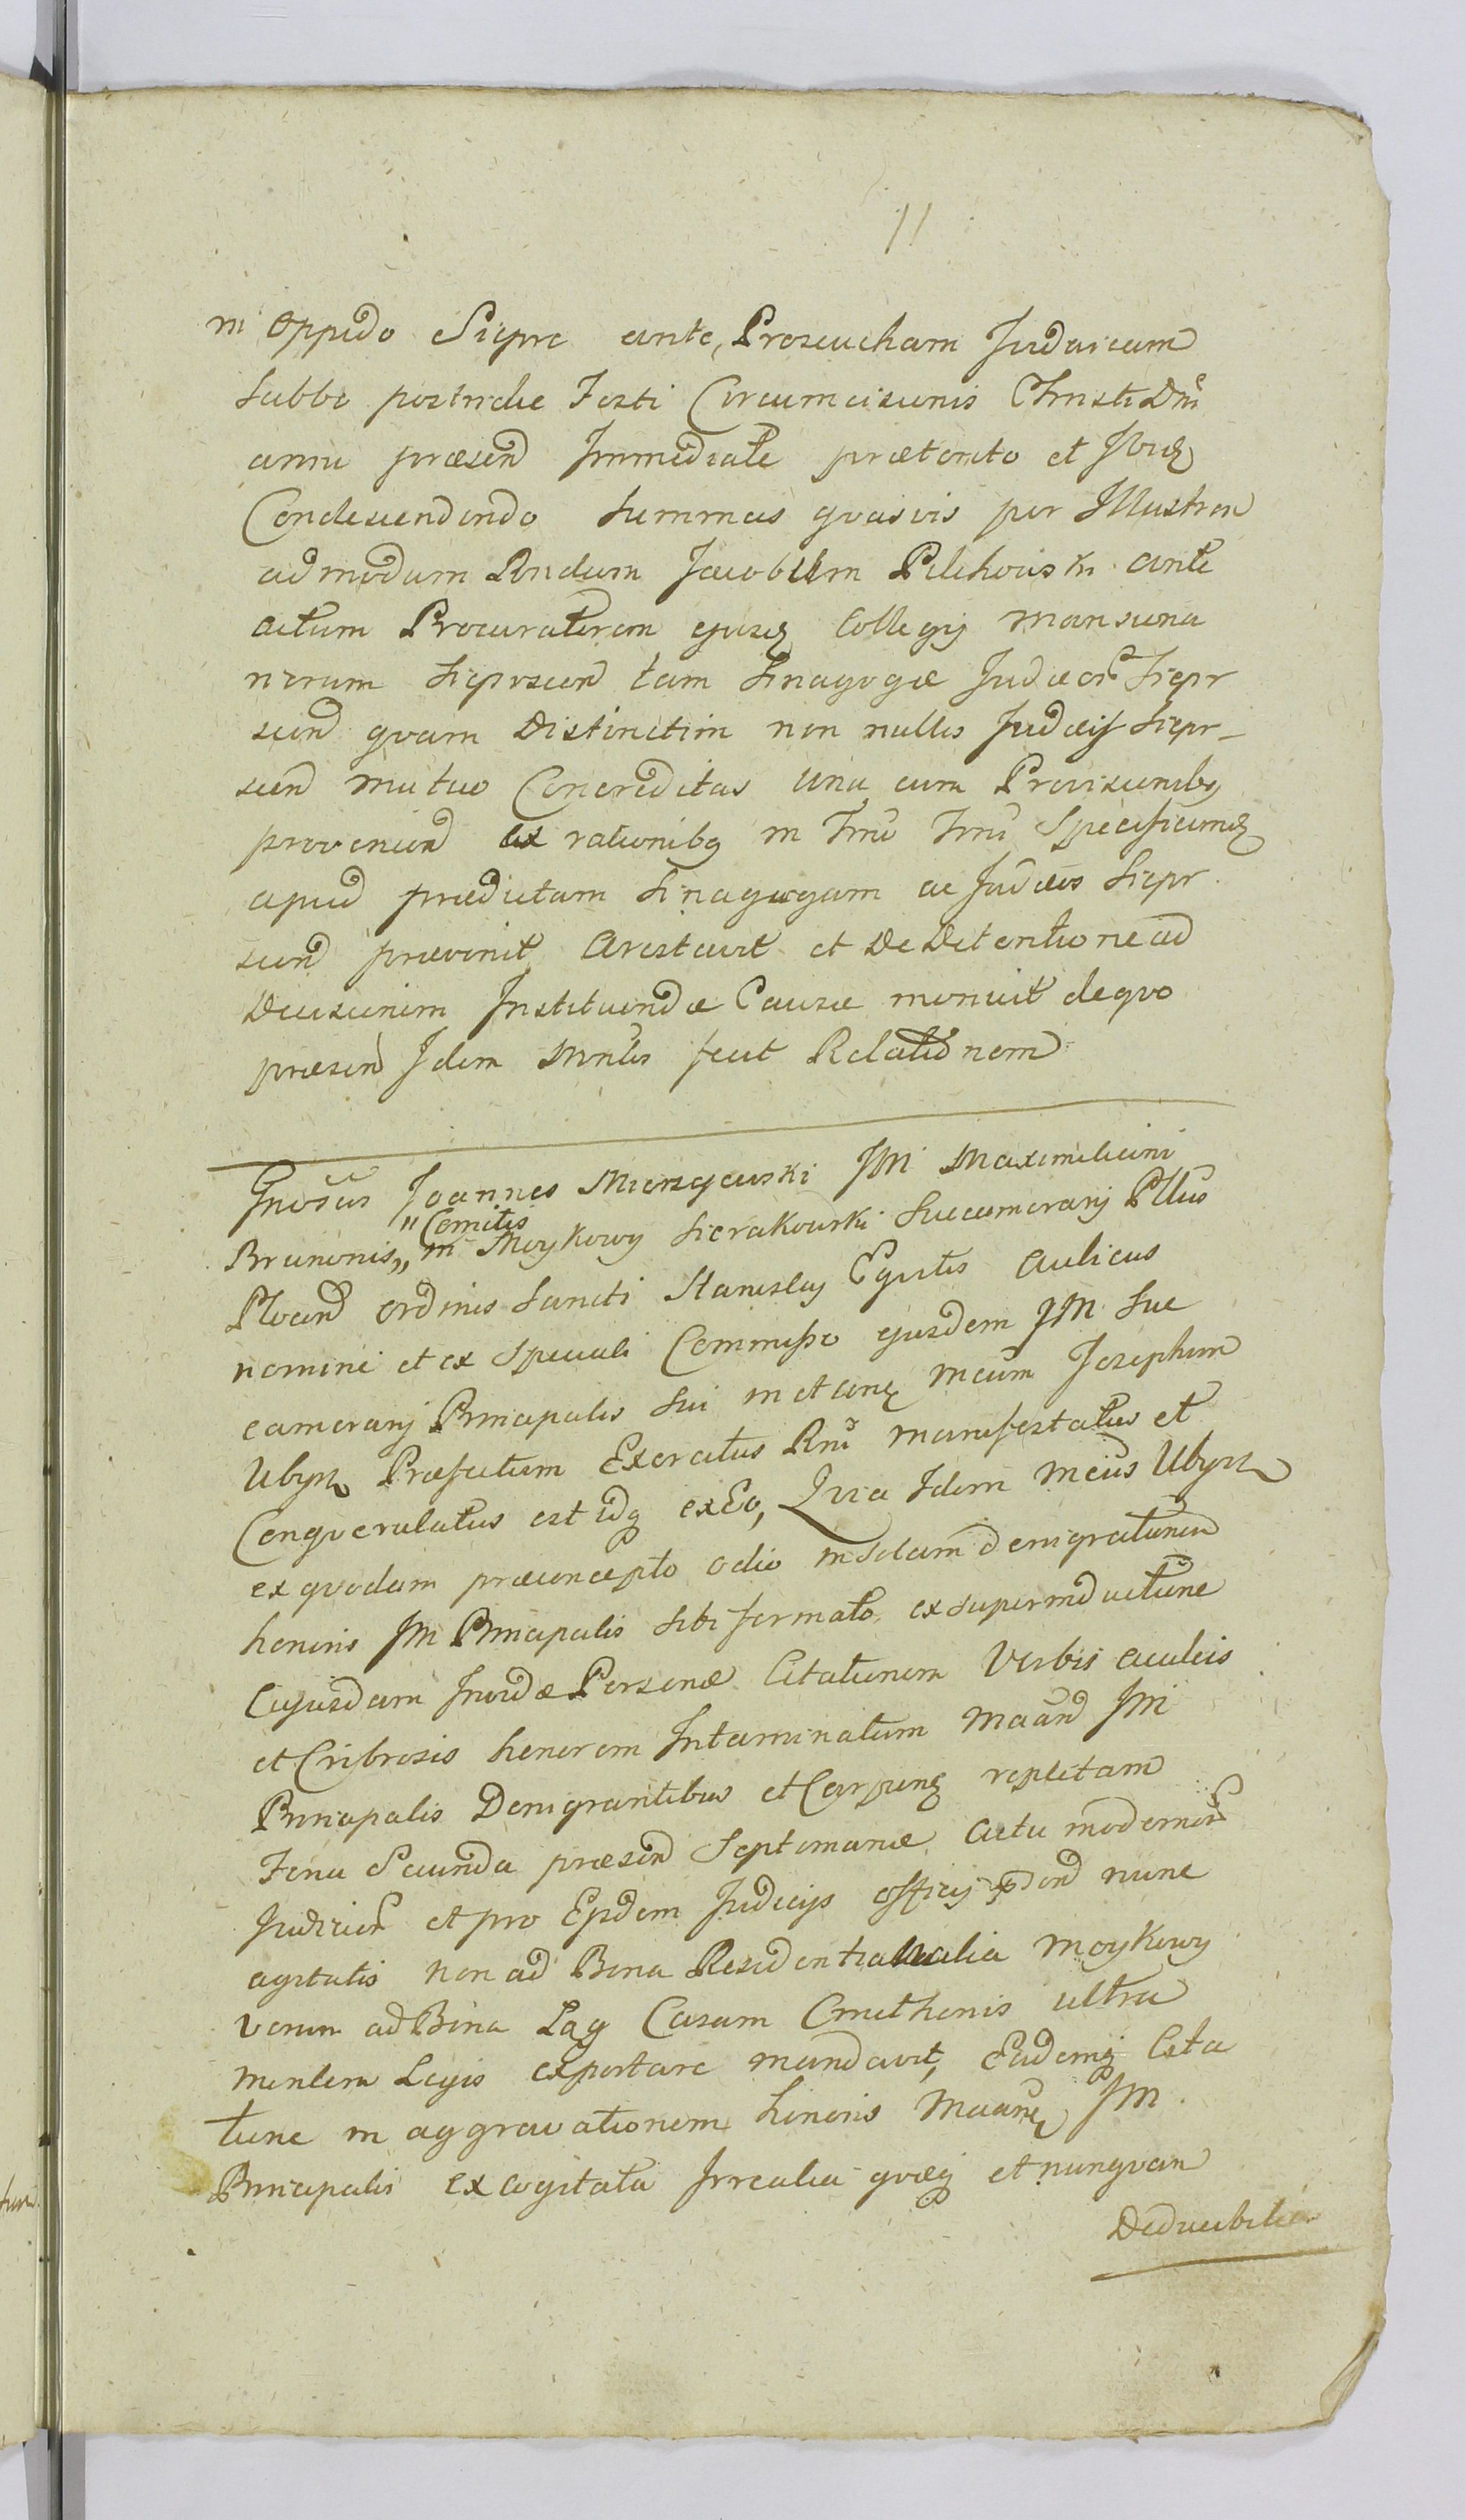 11
in Oppido Siepre ante Proseucham Judaicam
Sabbo postridie Festi Circumcisionis Christi Dni
anni præsen Immediate præterito et Ibid
Condescendendo Summas qvasvis per Illustrem
admodum Rndum Jacobum Pilchowski ante
actum Procuratorem ejusq Collegij Mansiona
riorum Sieprscen tam Sinagogæ Judæor Siepr
scen qvam Distinctim non nullis Judæis Siepr-
scen mutuo Concreditas una cum Provisionibq
provenien ex rationibq in Trno Trno Specificandq
apud prædictam Sinagogam ac Judæos Siepr
scen prævenit Arestavit et De Detentione ad
Decisionem Instituendæ Causæ monuit de qvo
præsen Idem Mnlis fecit Relationem

Gnosus Joannes Mierzejewski JM Maximiliani
Brunonis „Comitis„ in Moykowy Sierakowski Succamerarij Pttus
Plocen Ordinis Sancti Stanislaj Eqvitis Aulicus
nomine et ex Speciali Commisso ejusdem JM Suc
camerarij Principalis Sui in et conq Mcum Josephum
Ubysz Præfectum Exercitus Rni manifestatus et
Conqverulatus est idq ex Eo, Qvia Idem Mcus Ubysz
ex qvodam præconcepto odio in Solam denigrationem
honoris JM Principalis Sibi formato ex superinductione
Cujusdam Invidæ Personæ Citationem Verbis aculeis
et Cribrosis honorem Intaminatum Maand JM
Principalis Denigrantibus et Carpenq repletam
Feria Secunda præsen Septimanæ Actu modernor
Judicior et pro Eisdem Judicijs officij pden nunc
agitatis non ad Bona Residentialia Moykowy
verum ad Bona Łąg Casam Cmethonis ultra
mentem Legis exportare mandavit, Eademq Cita
tione in aggravationem honoris Maand JM
Principalis excogitata Irrealia qvæq et nunqvam
Deducibilia